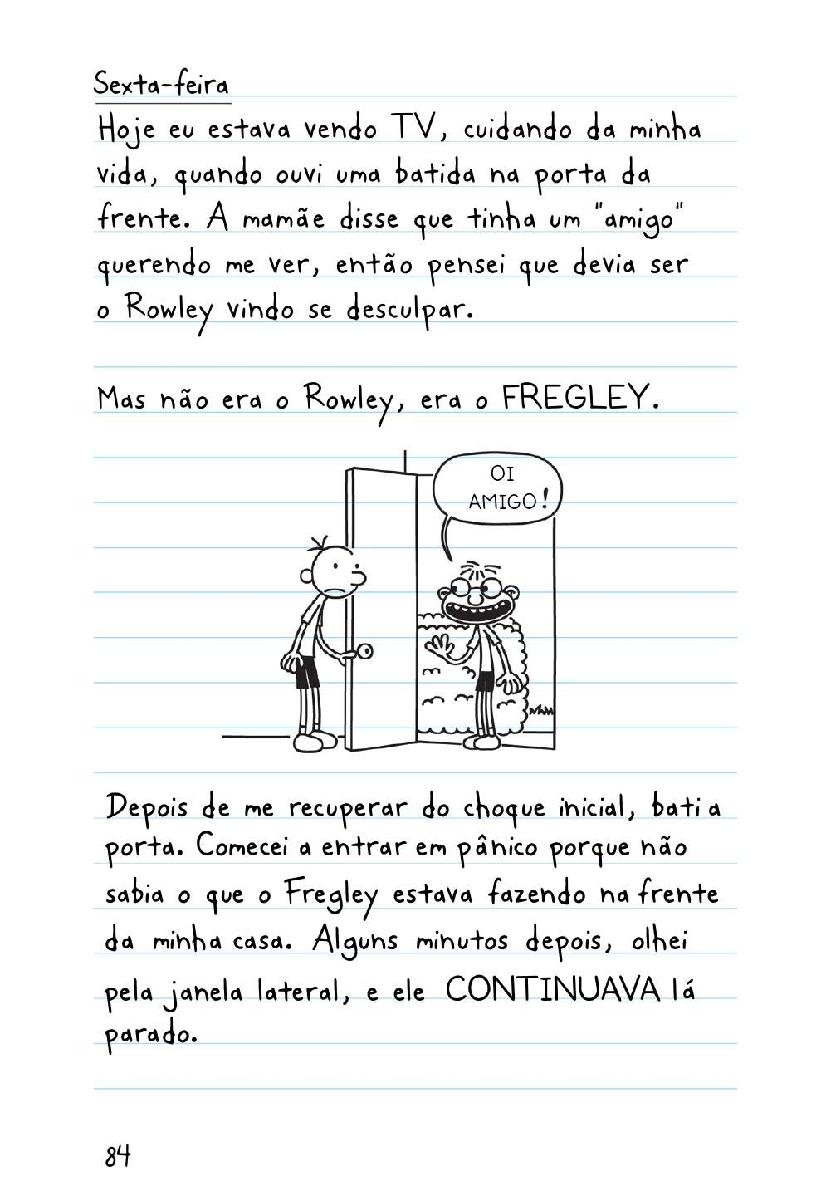 Sexta-feira
Hoje eu estava vendo TV, cuidando da minha
vida, quando ouvi uma batida na porta da
frente. A mamãe disse que tinha um "amigo"
querendo me ver, então pensei que devia ser
o Rowley vindo se desculpar.
Mas não era o Rowley, era o FREGLEY.
OI
AMIGO!
Depois de me recuperar do choque inicial, bati a
porta. Comecei a entrar em pânico porque não
sabia o que o Fregley estava fazendo na frente
da minha casa. Alguns minutos depois, olhei
pela janela lateral, e ele CONTINUAVA lá
parado.
84